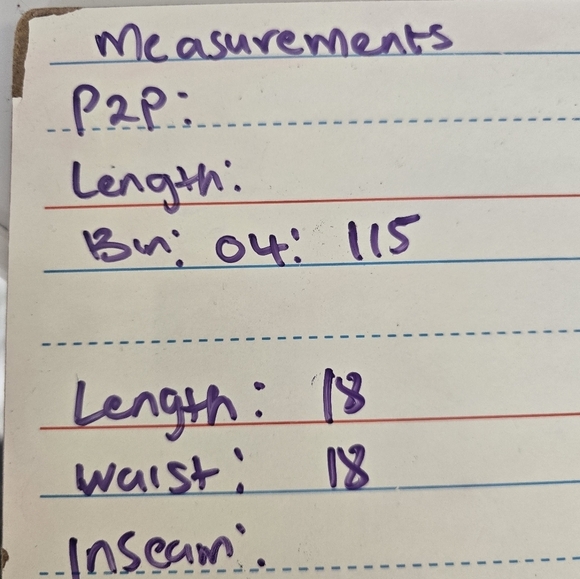 Measurements
P2P:
Length:
Bin: 04: 115
Length: 18
Waist: 18
Inseam: